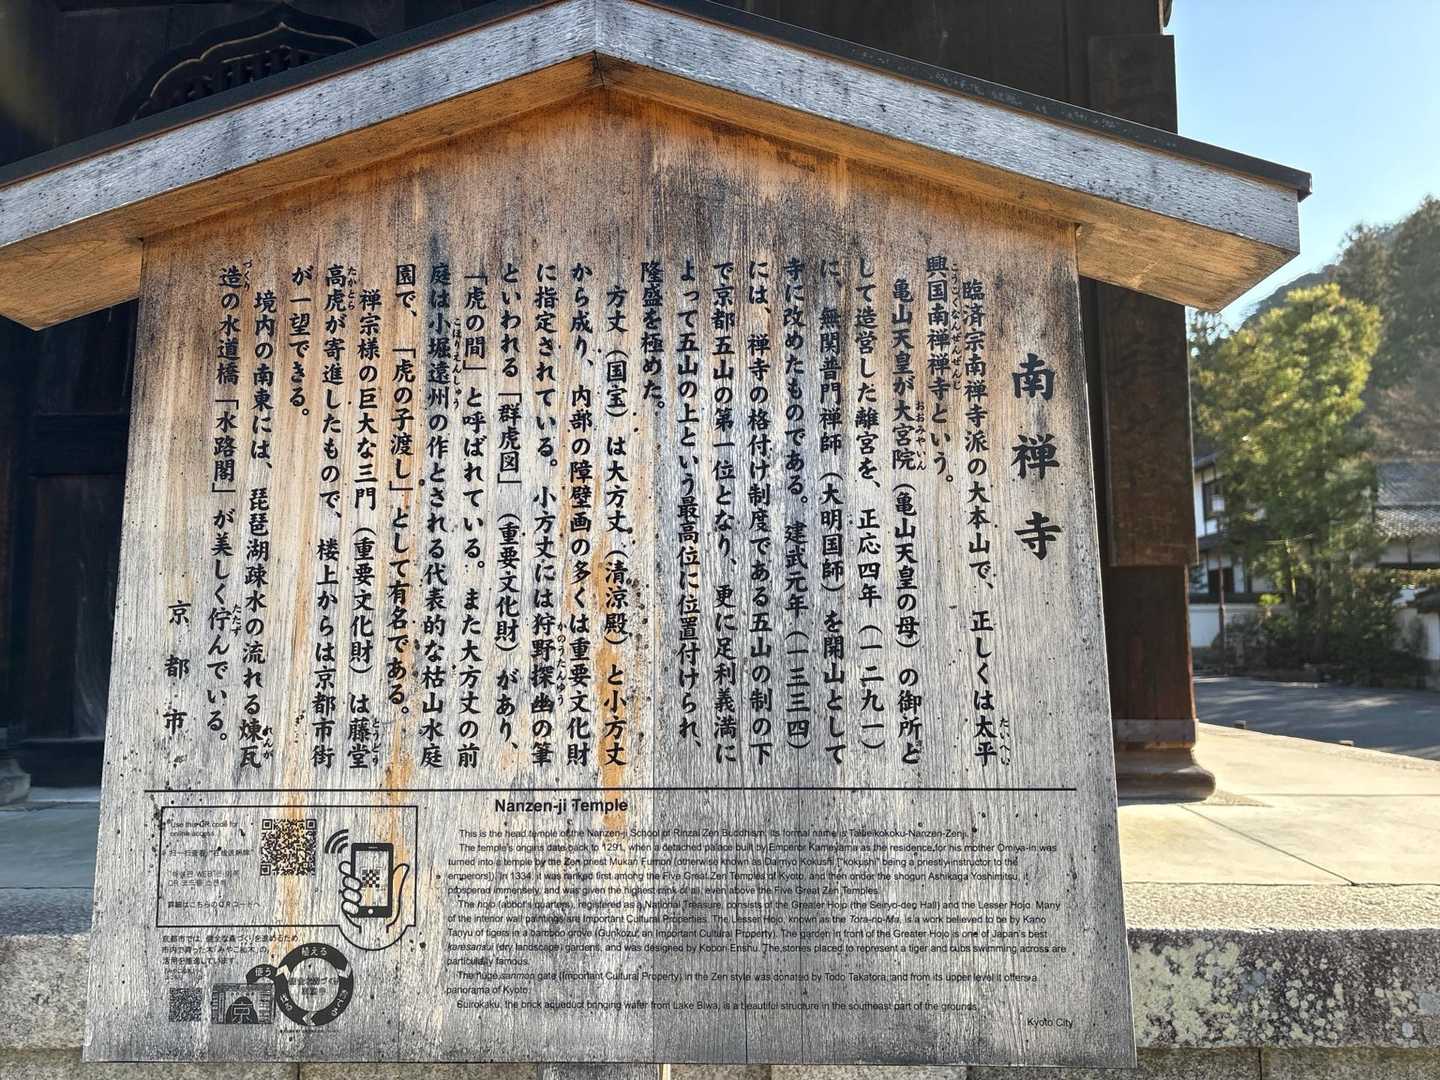 南禅寺
臨済宗南禅寺派の大本山で、正しくは太平
興国南禅禅寺という。
亀山天皇が大宮院（亀山天皇の母）の御所と
して造営した離宮を、正応四年（一二九一）
に、無関普門禅師（大明国師）を開山として
寺に改めたものである。建武元年（一三三四）
には、禅寺の格付け制度である五山の制の下
で京都五山の第一位となり、更に足利義満に
よって五山の上という最高位に位置付けられ、
隆盛を極めた。
方丈（国宝）は大方丈（清涼殿）と小方丈
から成り、内部の障壁画の多くは重要文化財
に指定されている。小方丈には狩野探幽の筆
といわれる「群虎図」（重要文化財）があり、
「虎の間」と呼ばれている。また大方丈の前
庭は小堀遠州の作とされる代表的な枯山水庭
園で、「虎の子渡し」として有名である。
禅宗様の巨大な三門（重要文化財）は藤堂
高虎が寄進したもので、楼上からは京都市街
が一望できる。
境内の南東には、琵琶湖疏水の流れる煉瓦
造の水道橋「水路閣」が美しく佇んでいる。
京都市
Nanzen-ji Temple
This is the head temple of the Nanzen-ji School of Rinzai Zen Buddhism. Its formal name is Taiheikokoku-Nanzen-Zenji.
The temple's origins date back to 1291, when a detached palace built by Emperor Kameyama as the residence for his mother Omiya-in was
turned into a temple by the Zen priest Mukan Fumon (otherwise known as Daimyo Kokushi, "kokushi" being a priestly instructor to the
emperors). In 1334, it was ranked first among the Five Great Zen Temples of Kyoto, and then under the shogun Ashikaga Yoshimitsu, it
prospered immensely, and was given the highest rank of all, even above the Five Great Zen Temples.
The hojo (abbot's quarters), registered as a National Treasure, consists of the Greater Hojo (the Seiryo-den Hall) and the Lesser Hojo. Many
of the interior wall paintings are Important Cultural Properties. The Lesser Hojo, known as the Tora-no-Ma, is a work believed to be by Kano
Tanyu of tigers in a bamboo grove (Gunkozu, an Important Cultural Property). The garden in front of the Greater Hojo is one of Japan's best
karesansui (dry landscape) gardens, and was designed by Kobori Enshu. The stones placed to represent a tiger and cubs swimming across are
particularly famous.
The huge sanmon gate (Important Cultural Property) in the Zen style was donated by Todo Takatora, and from its upper level it offers a
panorama of Kyoto.
Suirokaku, the brick aqueduct bringing water from Lake Biwa, is a beautiful structure in the southeast part of the grounds.
Kyoto City
use this QR code for
online access
詳細はこちらのQRコードへ
京都市では、健全な森づくりを進めるため
市内で育った木「みやこ杣木」の
活用を推進しています。
使う
植える